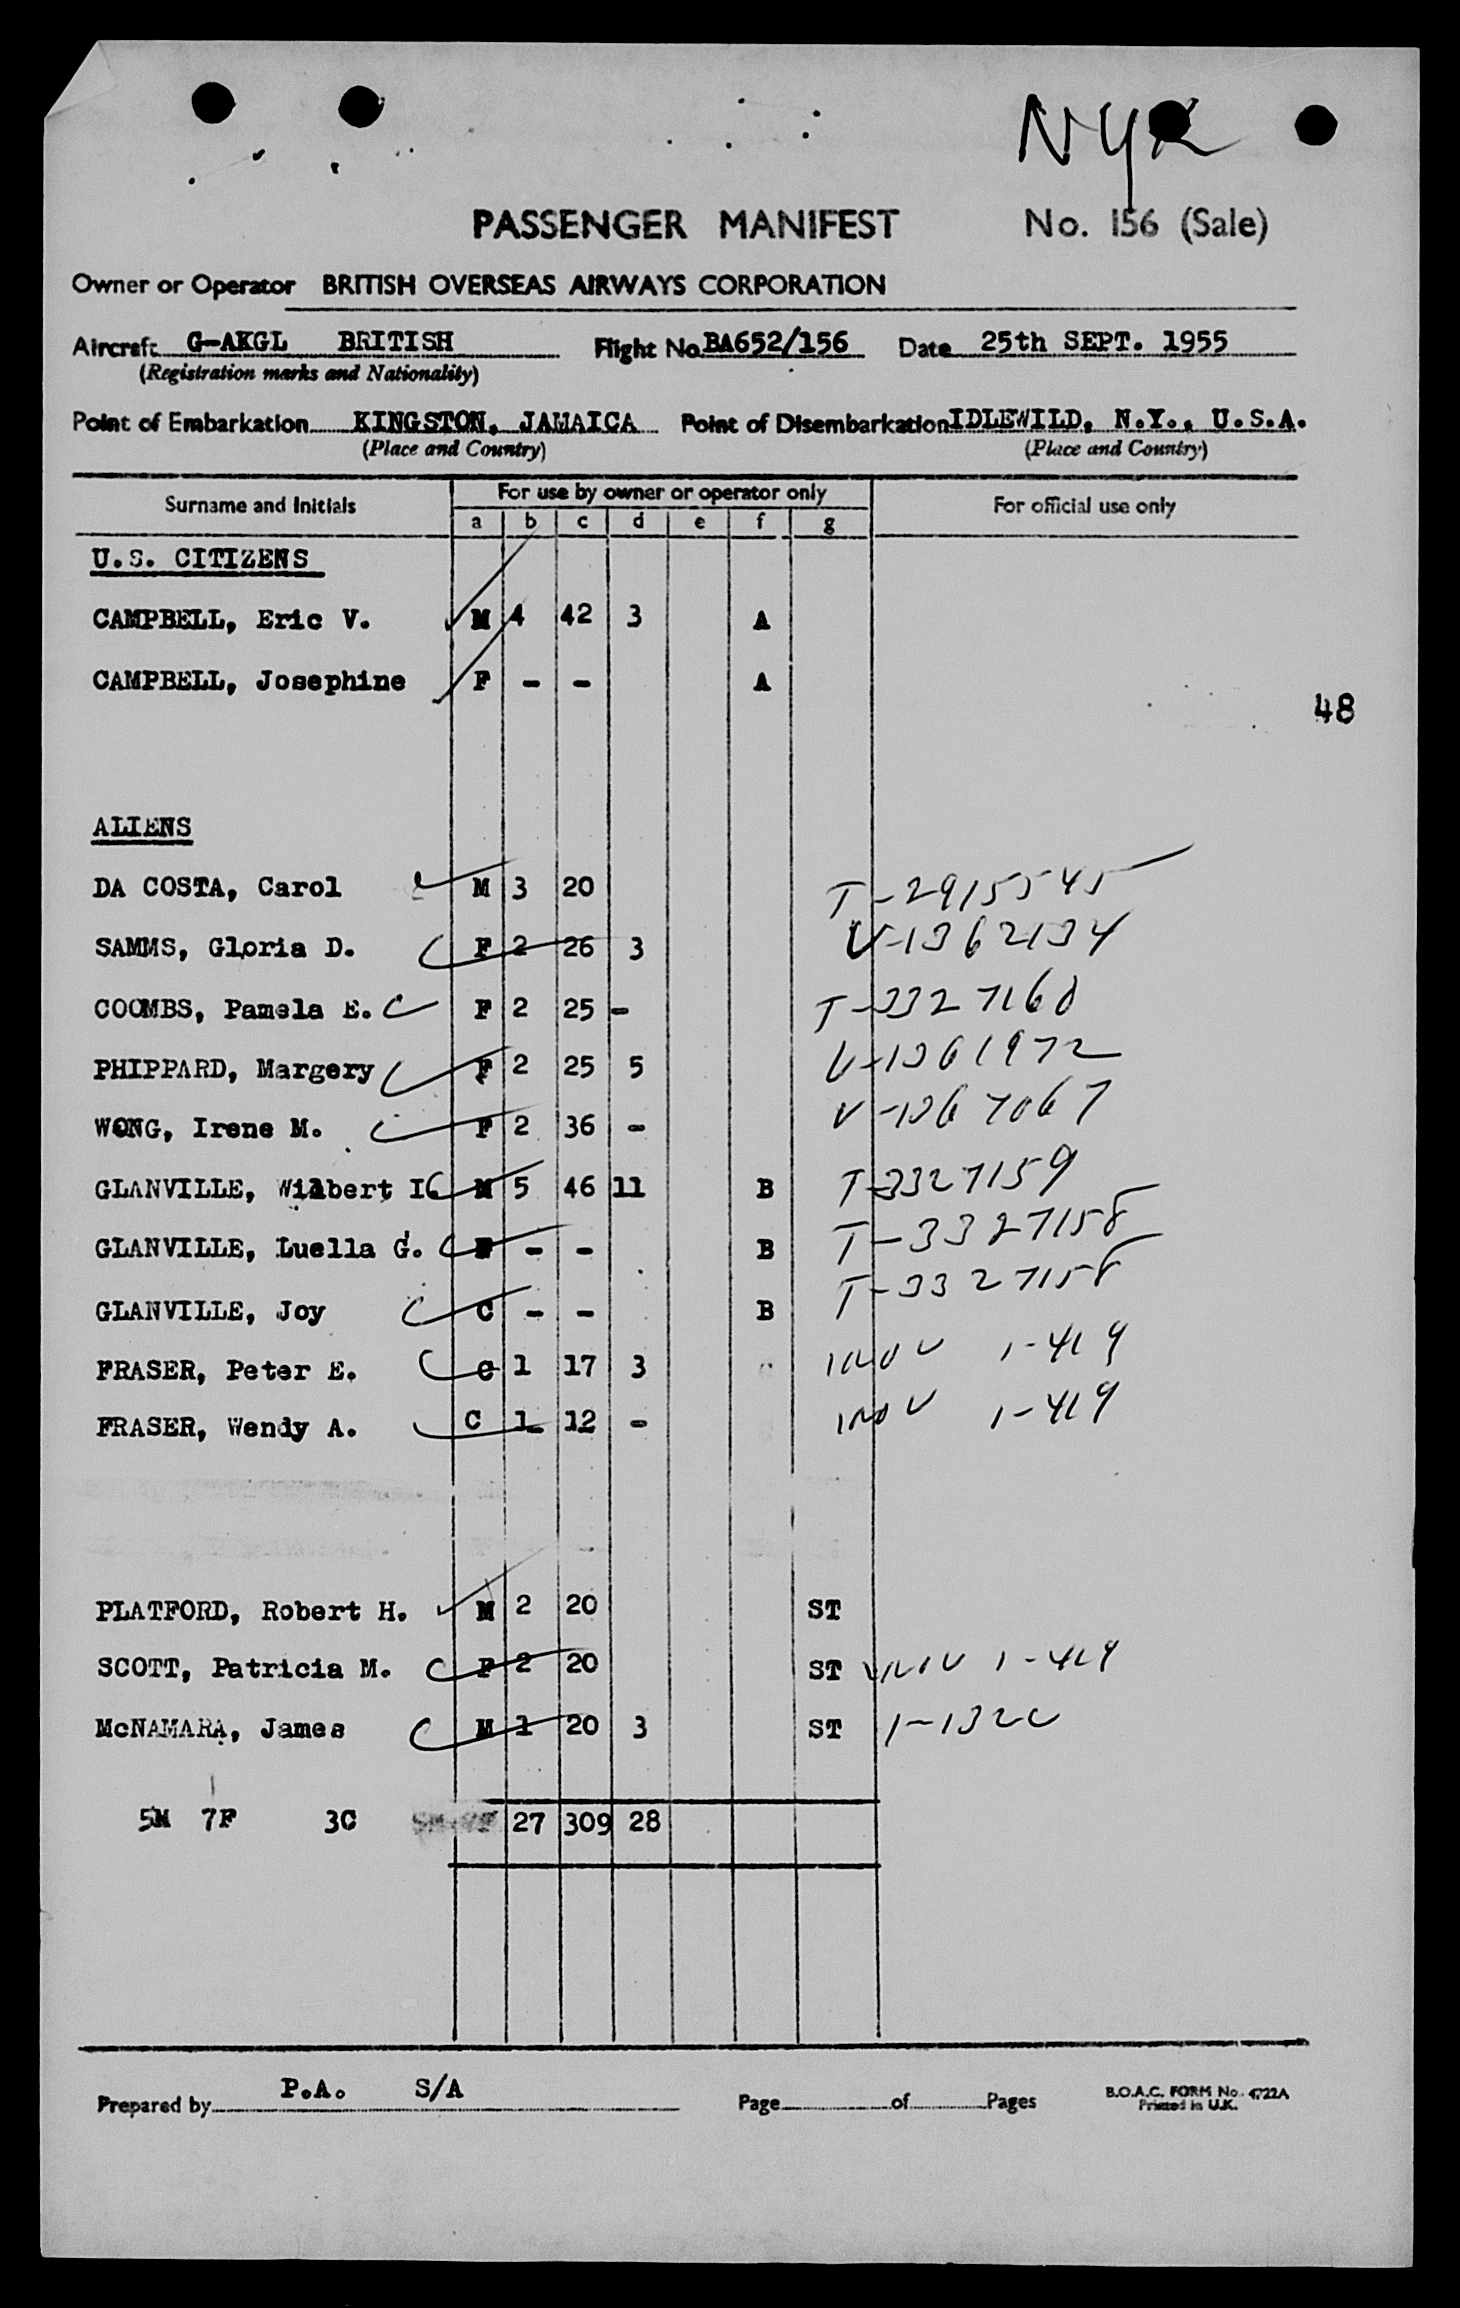 NYK
PASSENGER MANIFEST No. 156 (Sale)
Owner or Operator BRITISH OVERSEAS AIRWAYS CORPORATION
Aircraft G-AKGL BRITISH Flight No. BA652/156 Date 25th SEPT. 1955
(Registration marks and Nationality)
Point of Embarkation KINGSTON, JAMAICA Point of Disembarkation IDLEWILD, N.Y., U.S.A.
(Place and Country) (Place and Country)
Surname and Initials For use by owner or operator only For official use only
a b c d e f g
U.S. CITIZENS
CAMPBELL, Eric V. M 4 42 3 A
CAMPBELL, Josephine F - - A
48
ALIENS
DA COSTA, Carol M 3 20 T-2915545
SAMMS, Gloria D. F 2 26 3 V-1362134
COOMBS, Pamela E. F 2 25 - T-3327160
PHIPPARD, Margery F 2 25 5 V-1361972
WONG, Irene M. F 2 36 - V-1367067
GLANVILLE, Wilbert I. M 5 46 11 B T-3327159
GLANVILLE, Luella G. F - - B T-3327158
GLANVILLE, Joy C - - B T-3327158
FRASER, Peter E. C 1 17 3 1-419
FRASER, Wendy A. C 1 12 - 1-419
PLATFORD, Robert H. M 2 20 ST
SCOTT, Patricia M. F 2 20 ST 1-419
McNAMARA, James M 1 20 3 ST
5M 7F 3C 27 309 28
Prepared by P.A. S/A Page of Pages B.O.A.C. FORM No. 4722A
Printed in U.K.